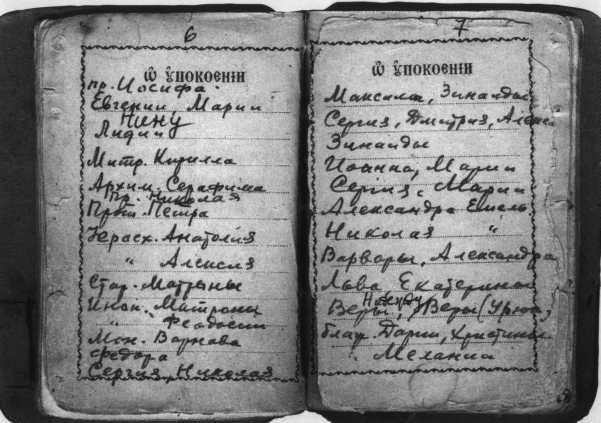 6
Ѡ ОУПОКОЕНІИ
пр. Иосифа.
Евгении Марии
Нину
Лидии
Митр. Кирилла
Архим. Серафима
Пр. Николая
Прот. Петра
Иерасх. Анатолия
" Алексия
Стар. Матроны
Инок. Матроны
" Феодосии
Мон. Варнава
Федора
Сергия, Николая
7
Ѡ ОУПОКОЕНІИ
Максима, Зинаиды
Сергия, Дмитрия,
Зинаиды
Иоанна, Марии
Сергия, Марии
Александра Емель
Николая "
Варвары, Александра
Льва Екатерины
Надежду
Веры, Веры
блаж. Дарии, Христины
" Мелании